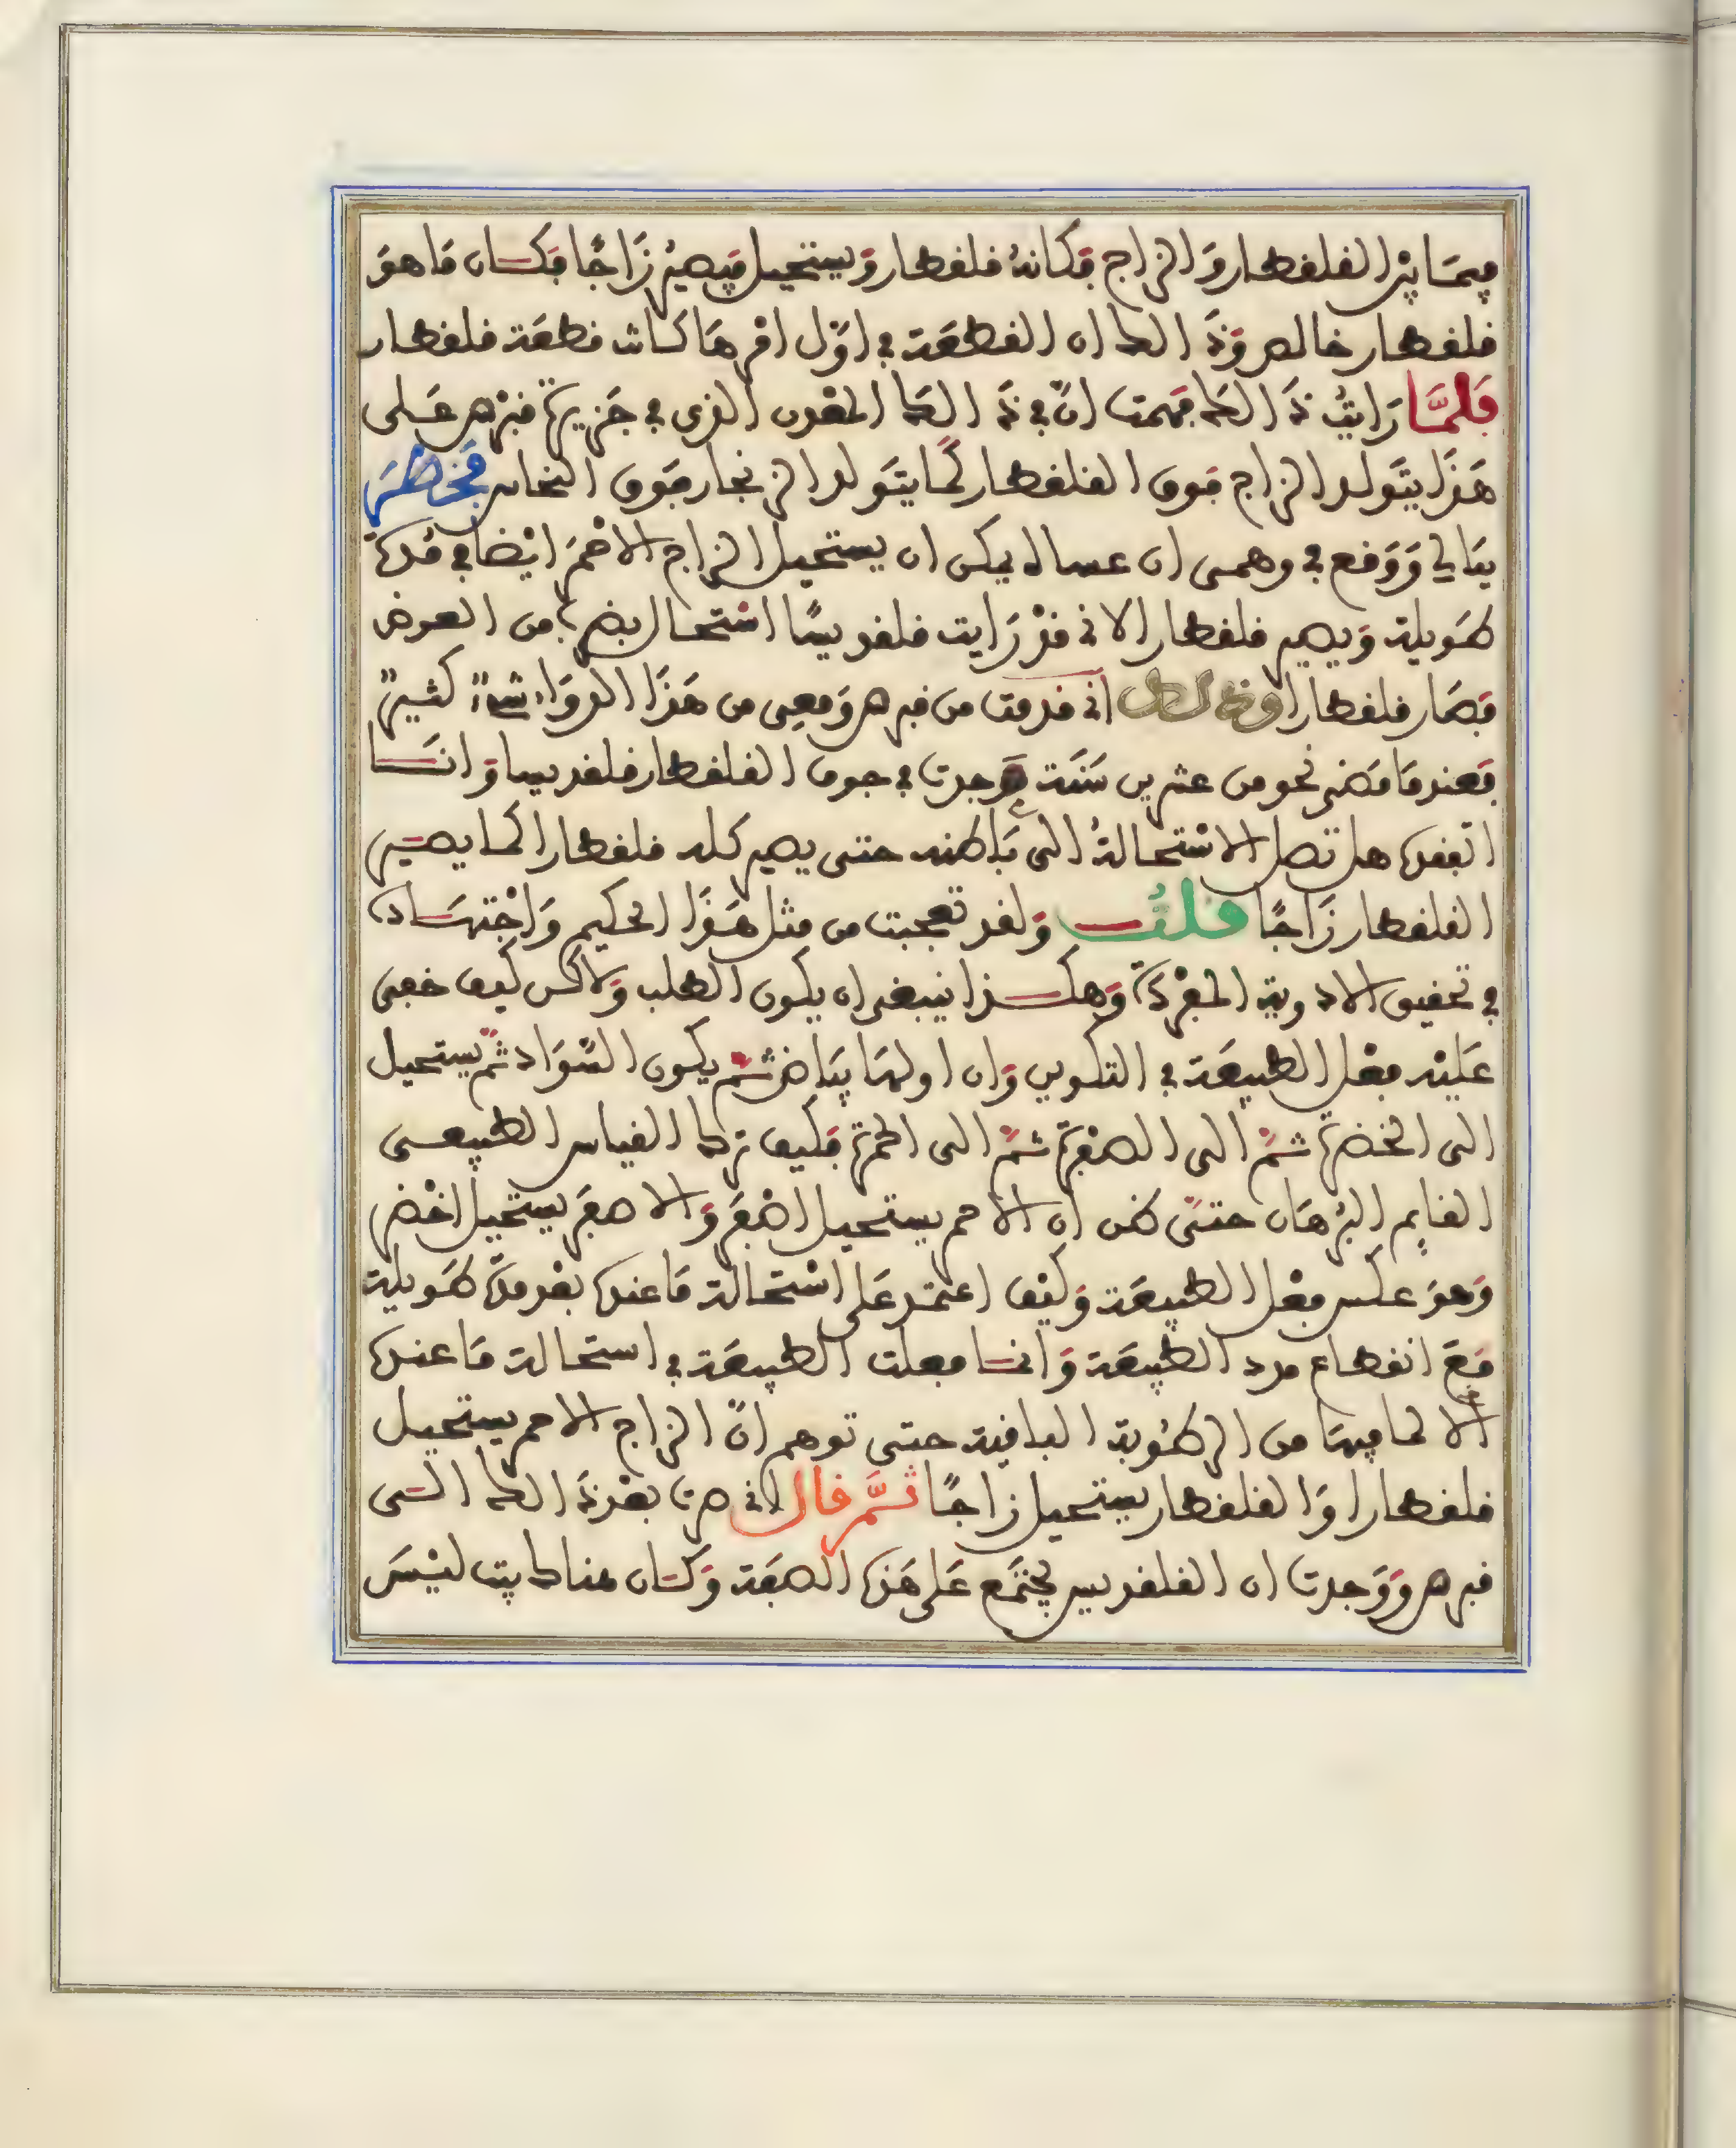 فيما بين القلقطار والزاج فكانه قلقطار ويستحيل فيصير زاجا فكان ما هو
قلقطار خالص وذالك ان القطعة في اول امرها كانت قطعة قلقطار
فلما رايت ذالك فهمت ان في ذالك المعدن الذى في جزيرة قبرص على
هذا يتولد الزاج فوق القلقطار كما يتولد الزنجار فوق النحاس فخطر
ببالي ووقع في وهمى ان عساه يمكن ان يستحيل الزاج الاحمر ايضا في مدة
طويلة ويصير قلقطار الانى قد رايت قلقديسا استحال بضرب من العرض
فصار قلقطارا وذالك انى قدمت من قبرص ومعى من هذا الدواء شيء كثير
فعندما مضى نحو من عشرين سنة وجدت في جوف القلقطار قلقديسا وانا
اتفقد هل تصل الاستحالة الى باطنه حتى يصير كله قلقطارا كما يصير
القلقطار زاجا قلت ولقد تعجبت من مثل هذا الحكيم واجتهاده
في تحقيق الادوية المفردة وهكذا ينبغى ان يكون الطلب ولاكن كيف خفى
عليه فعل الطبيعة في التكوين وان اولها بياض ثم يكون السواد ثم يستحيل
الى الخضرة ثم الى الصفرة ثم الى الحمرة فكيف ترك القياس الطبيعى
القايم البرهان حتى ظن ان الاحمر يستحيل اصفر والاصفر يستحيل اخضر
وهو عكس فعل الطبيعة وكيف اعتمد على استحالة ما عنده بعد مدة طويلة
مع انقطاع مدد الطبيعة وانما فعلت الطبيعة في استحالة ما عنده
الا لما فيها من الرطوبة الباقية حتى توهم ان الزاج الاحمر يستحيل
قلقطارا والقلقطار يستحيل زاجا ثم قال لانى صرت بعد ذالك الى
قبرص ووجدت ان القلقديس يجتمع على هذه الصفة وكان هناك بيت ليس